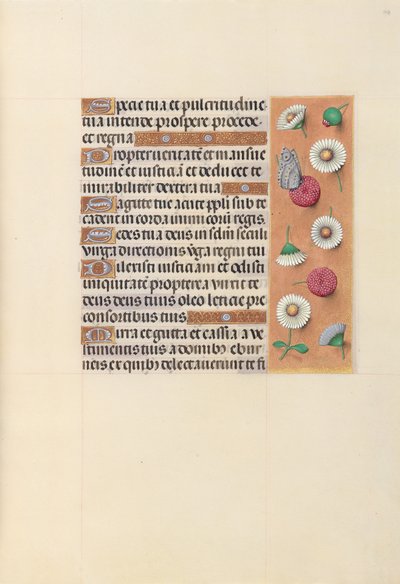 Specie tua et pulcritudine
tua intende prospere procede
et regna
Propter veritatē et mansue
tudinē et iusticiā et deducet te
mirabiliter dextera tua
Sagitte tue acute ppli sub te
cadent in corda inimicorū regis.
Sedes tua deus in sclm seculi
virga directionis vga regni tui
Dilexisti iusticiam et odisti
iniquitatē propterea vnxit te
deus deus tuus oleo leticie pre
consortibus tuis
Mirra et gutta et cassia a ve
stimentis tuis a domibꝰ ebur
neis ex quibꝰ delectauerunt te fi